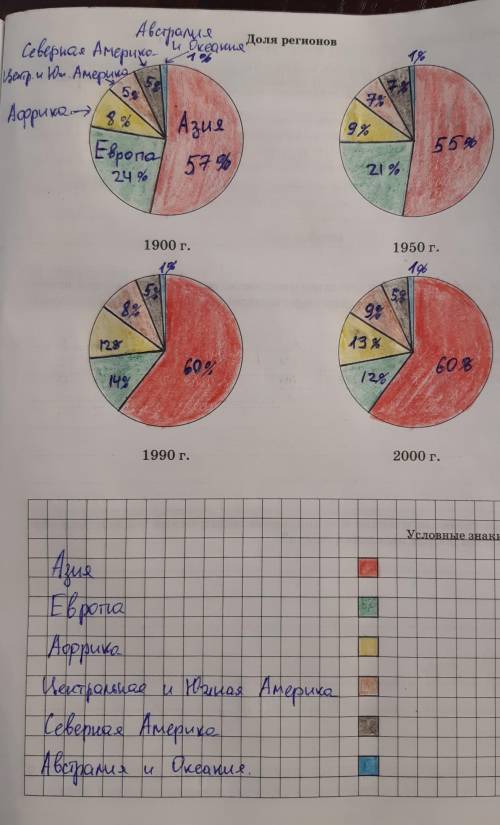 Доля регионов
Австралия
и Океания
Северная Америка
Центр. и Юж. Америка
Африка
1%
5%
5%
8%
Азия
57%
Европа
24%
1900 г.
1%
7%
7%
9%
55%
21%
1950 г.
1%
5%
8%
12%
60%
14%
1990 г.
1%
5%
9%
13%
60%
12%
2000 г.
Условные знаки
Азия
Европа
Африка
Центральная и Южная Америка
Северная Америка
Австралия и Океания.